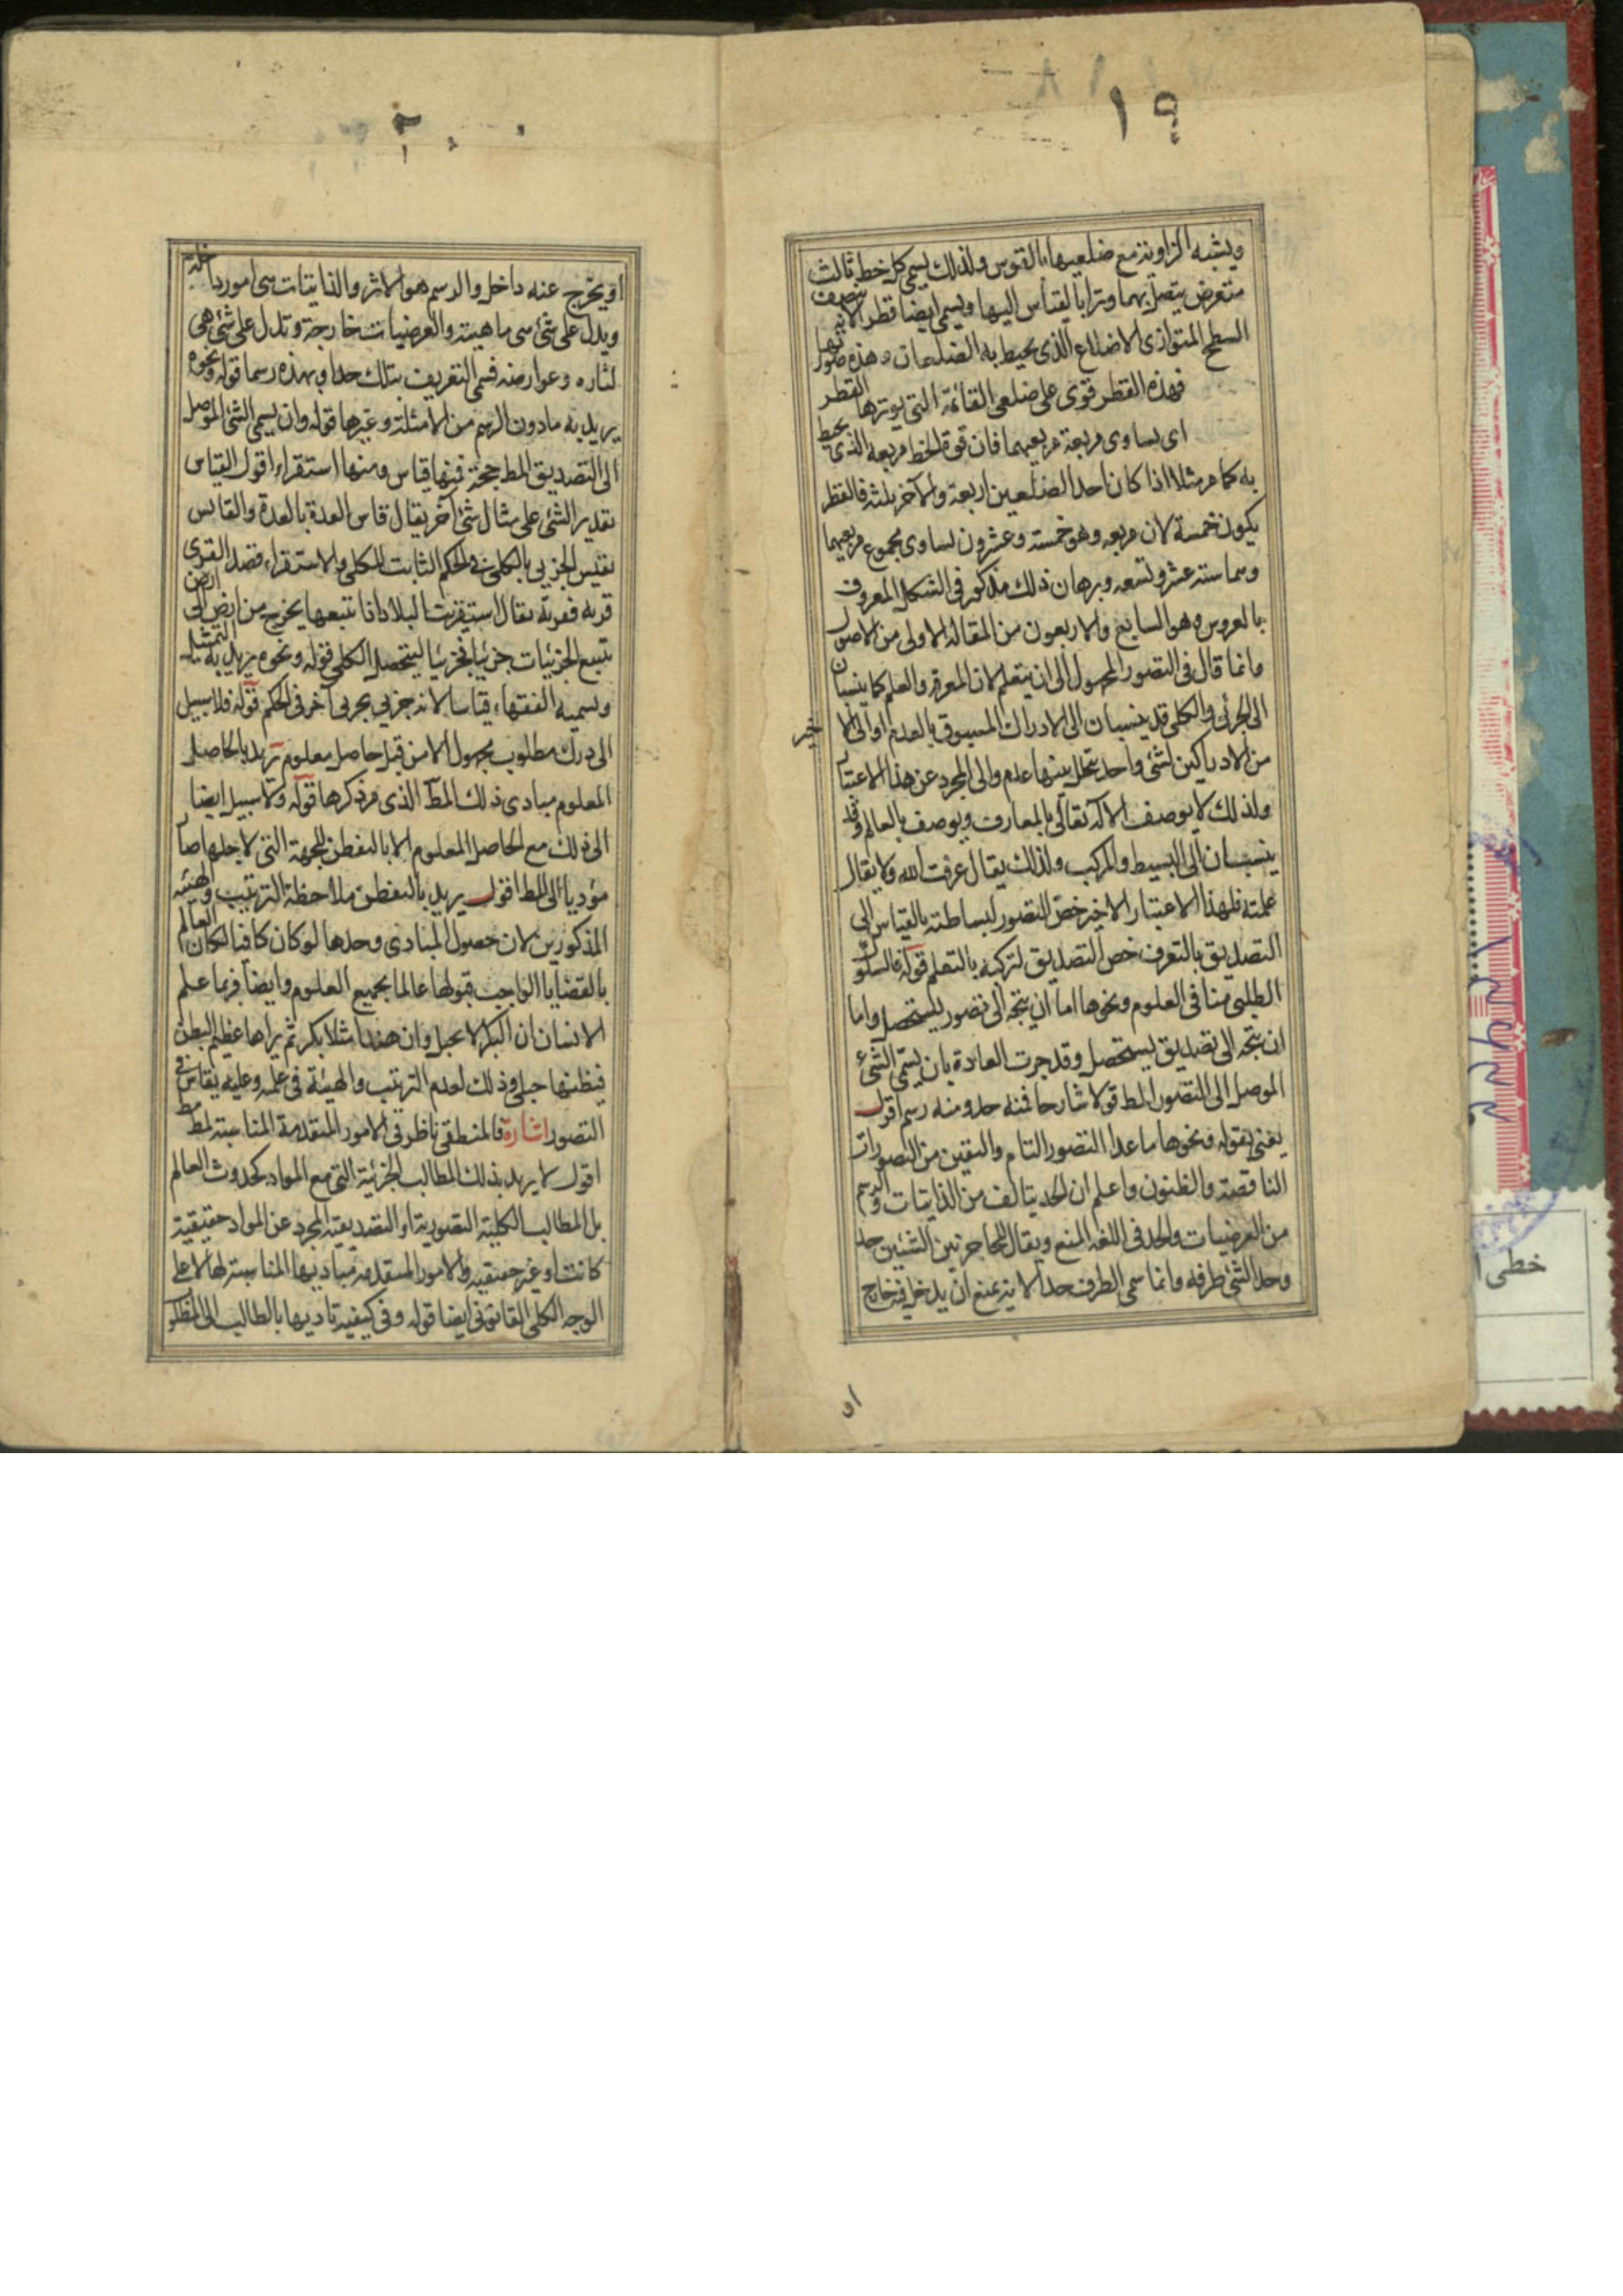 ١٩
ويشبه الزاوية مع ضلعيها بالقوس ولذلك يسمى كل خط ثالث
متعرض يتصل بهما وترا بالقياس اليها ويسمى ايضا قطر الانه ينصف
السطح المتوازى الاضلاع الذى يحيط به الضلعان وهذه صورتها
فهذه القطر قوى على ضلعى القائمة التى يوترها القطر
اى يساوى مربعة مربعيهما فان قوة الخط مربعه الذى يحيط
به كما مر مثلا اذا كان احد الضلعين اربعة والآخر ثلثة فالقطر
يكون خمسة لان مربعه وهو خمسة وعشرون يساوى مجموع مربعيهما
وهما ستة عشر وتسعه وبرهان ذلك مذكور فى الشكل المعروف
بالعروس وهو السابع والاربعون من المقالة الاولى من الاصول
وانما قال فى التصور المجهول الى ان يتعلم لان المعرفة والعلم كما ينسبان
الى الجزئى والكلى قد ينسبان الى الادراك المسبوق بالعدم او الى الا
خير
من الادراكين لشئ واحد يتخلل بينهما عدم والى المجرد عن هذا الاعتبار
ولذلك لا يوصف الاله تعالى بالمعارف ويوصف بالعالم وقد
ينسبان الى البسيط والمركب ولذلك يقال عرفت الله ولا يقال
علمته فلهذا الاعتبار الاخير خص التصور لبساطته بالقياس الى
التصديق بالتعرف خص التصديق لتركبه بالتعلم قوله فالسلوك
الطلبى منا فى العلوم ونحوها اما ان يتجه الى تصور ليستحصل واما
ان يتجه الى تصديق ليستحصل وقد جرت العادة بان يسمى الشئ
الموصل الى التصور المط قولا شارحا فمنه حد ومنه رسم اقول
يعنى بقوله ونحوها ما عدا التصور التام واليقين من التصورات
الناقصة والظنون واعلم ان الحد يتالف من الذاتيات والرسم
من العرضيات والحد فى اللغة المنع ويقال للحاجز بين الشيئين حد
وحد الشئ طرفه وانما سمى الطرف حدا لانه يمنع ان يدخل فيه خارج
او
٢٠
او يخرج عنه داخل والرسم هو الاثر والذاتيات سى امور داخلة
ويدل على شئ سى ماهيته والعرضيات خارجة وتدل على شئ هى
اثاره وعوارضه فسمى التعريف بتلك حدا وبهذه رسما قوله ونحوه
يريد به ما دون الرسم من الامثلة وغيرها قوله وان يسمى الشئ الموصل
الى التصديق المط حجة فمنها قياس ومنها استقراء اقول القياس
تقدير الشئ على مثال شئ آخر يقال قاس العدة بالعدة والقايس
يقيس الجزيى بالكلى فى الحكم الثابت للكلى والاستقراء قصد القرى
قرية فقرية يقال استقريت البلاد اذا تتبعها يخرج من ارض الى ارض
تتبع الجزئيات جزئيا فجزئيا ليتحصل الكلى قوله ونحوه يريد به التمثيل
ويسميه الفقهاء قياسا لانه جزيى بجزيى آخر فى الحكم قوله فلا سبيل
الى درك مطلوب مجهول الا من قبل حاصل معلوم يريد بالحاصل
المعلوم مبادى ذلك المط الذى مر ذكرها قوله ولا سبيل ايضا
الى ذلك مع الحاصل المعلوم الا بالتفطن للجهة التى لاجلها صار
مؤديا الى المط اقول يريد بالتفطن ملاحظة الترتيب والهيئة
المذكورين لان حصول المبادى وحدها لو كان كافيا لكان العالم
بالقضايا الواجب قبولها عالما بجميع العلوم وايضا فربما علم
الانسان ان البكر لا تحبل وان هندا مثلا بكر ثم يراها عظيم البطن
فيظنها حبلى وذلك لعدم الترتيب والهيئة فى علمه وعليه يقاس فى
التصور اشارة فالمنطقى ناظر فى الامور المتقدمة المناسبة لمط مط
اقول لا يريد بذلك المطالب الجزئية التى مع المواد كحدوث العالم
بل المطالب الكلية التصورية او التصديقية المجرد عن المواد حقيقية
كانت او غير حقيقيه والامور المتقدمه مباديها المناسبة لها لا على
الوجه الكلى القانونى ايضا قوله وفى كيفية تاديها بالطالب الى المطلو
خطى